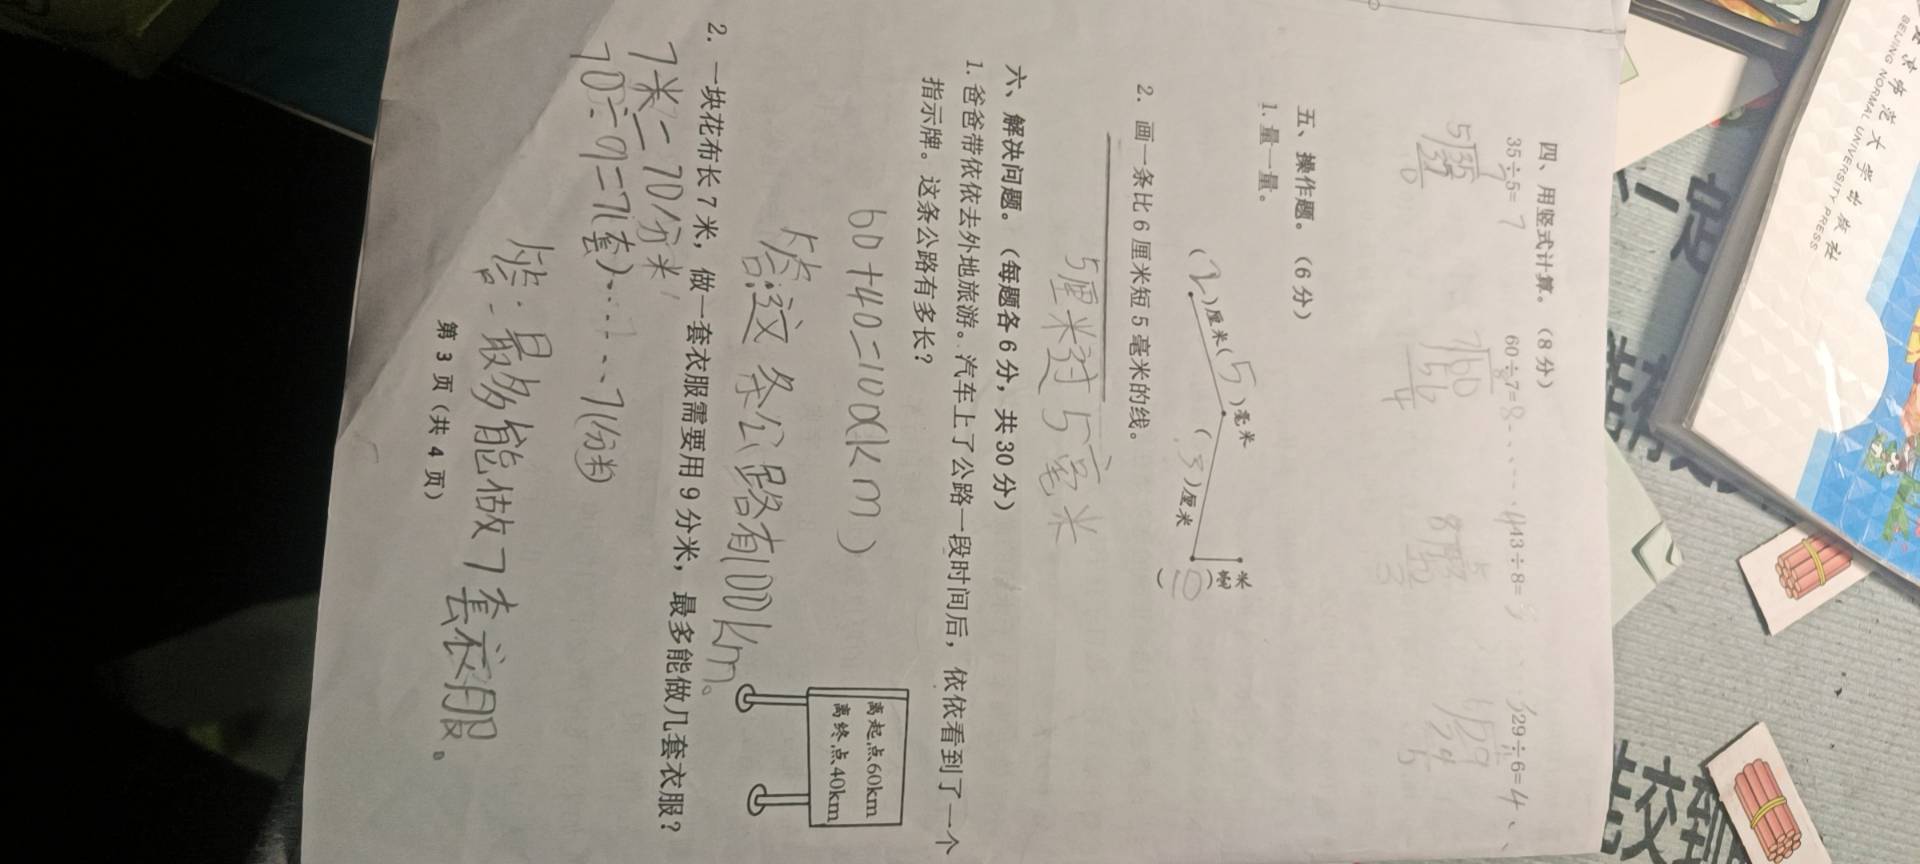 四、用竖式计算。（8分）
35÷5=7
60÷7=8……4
43÷8=
29÷6=4
五、操作题。（6分）
1. 量一量。
（2）厘米（5）毫米
（3）厘米
（10）毫米
2. 画一条比6厘米短5毫米的线。
5厘米过5毫米
六、解决问题。（每题各6分，共30分）
1. 爸爸带依依去外地旅游。汽车上了公路一段时间后，依依看到了一个
指示牌。这条公路有多长？
离起点60km
离终点40km
60+40=100(km)
答:这条公路有100km。
2. 一块花布长7米，做一套衣服需要用9分米，最多能做几套衣服？
7米=70分米
70÷9=7(套)……7(分米)
答:最多能做7套衣服。
第 3 页（共 4 页）
北京师范大学出版社
BEIJING NORMAL UNIVERSITY PRESS